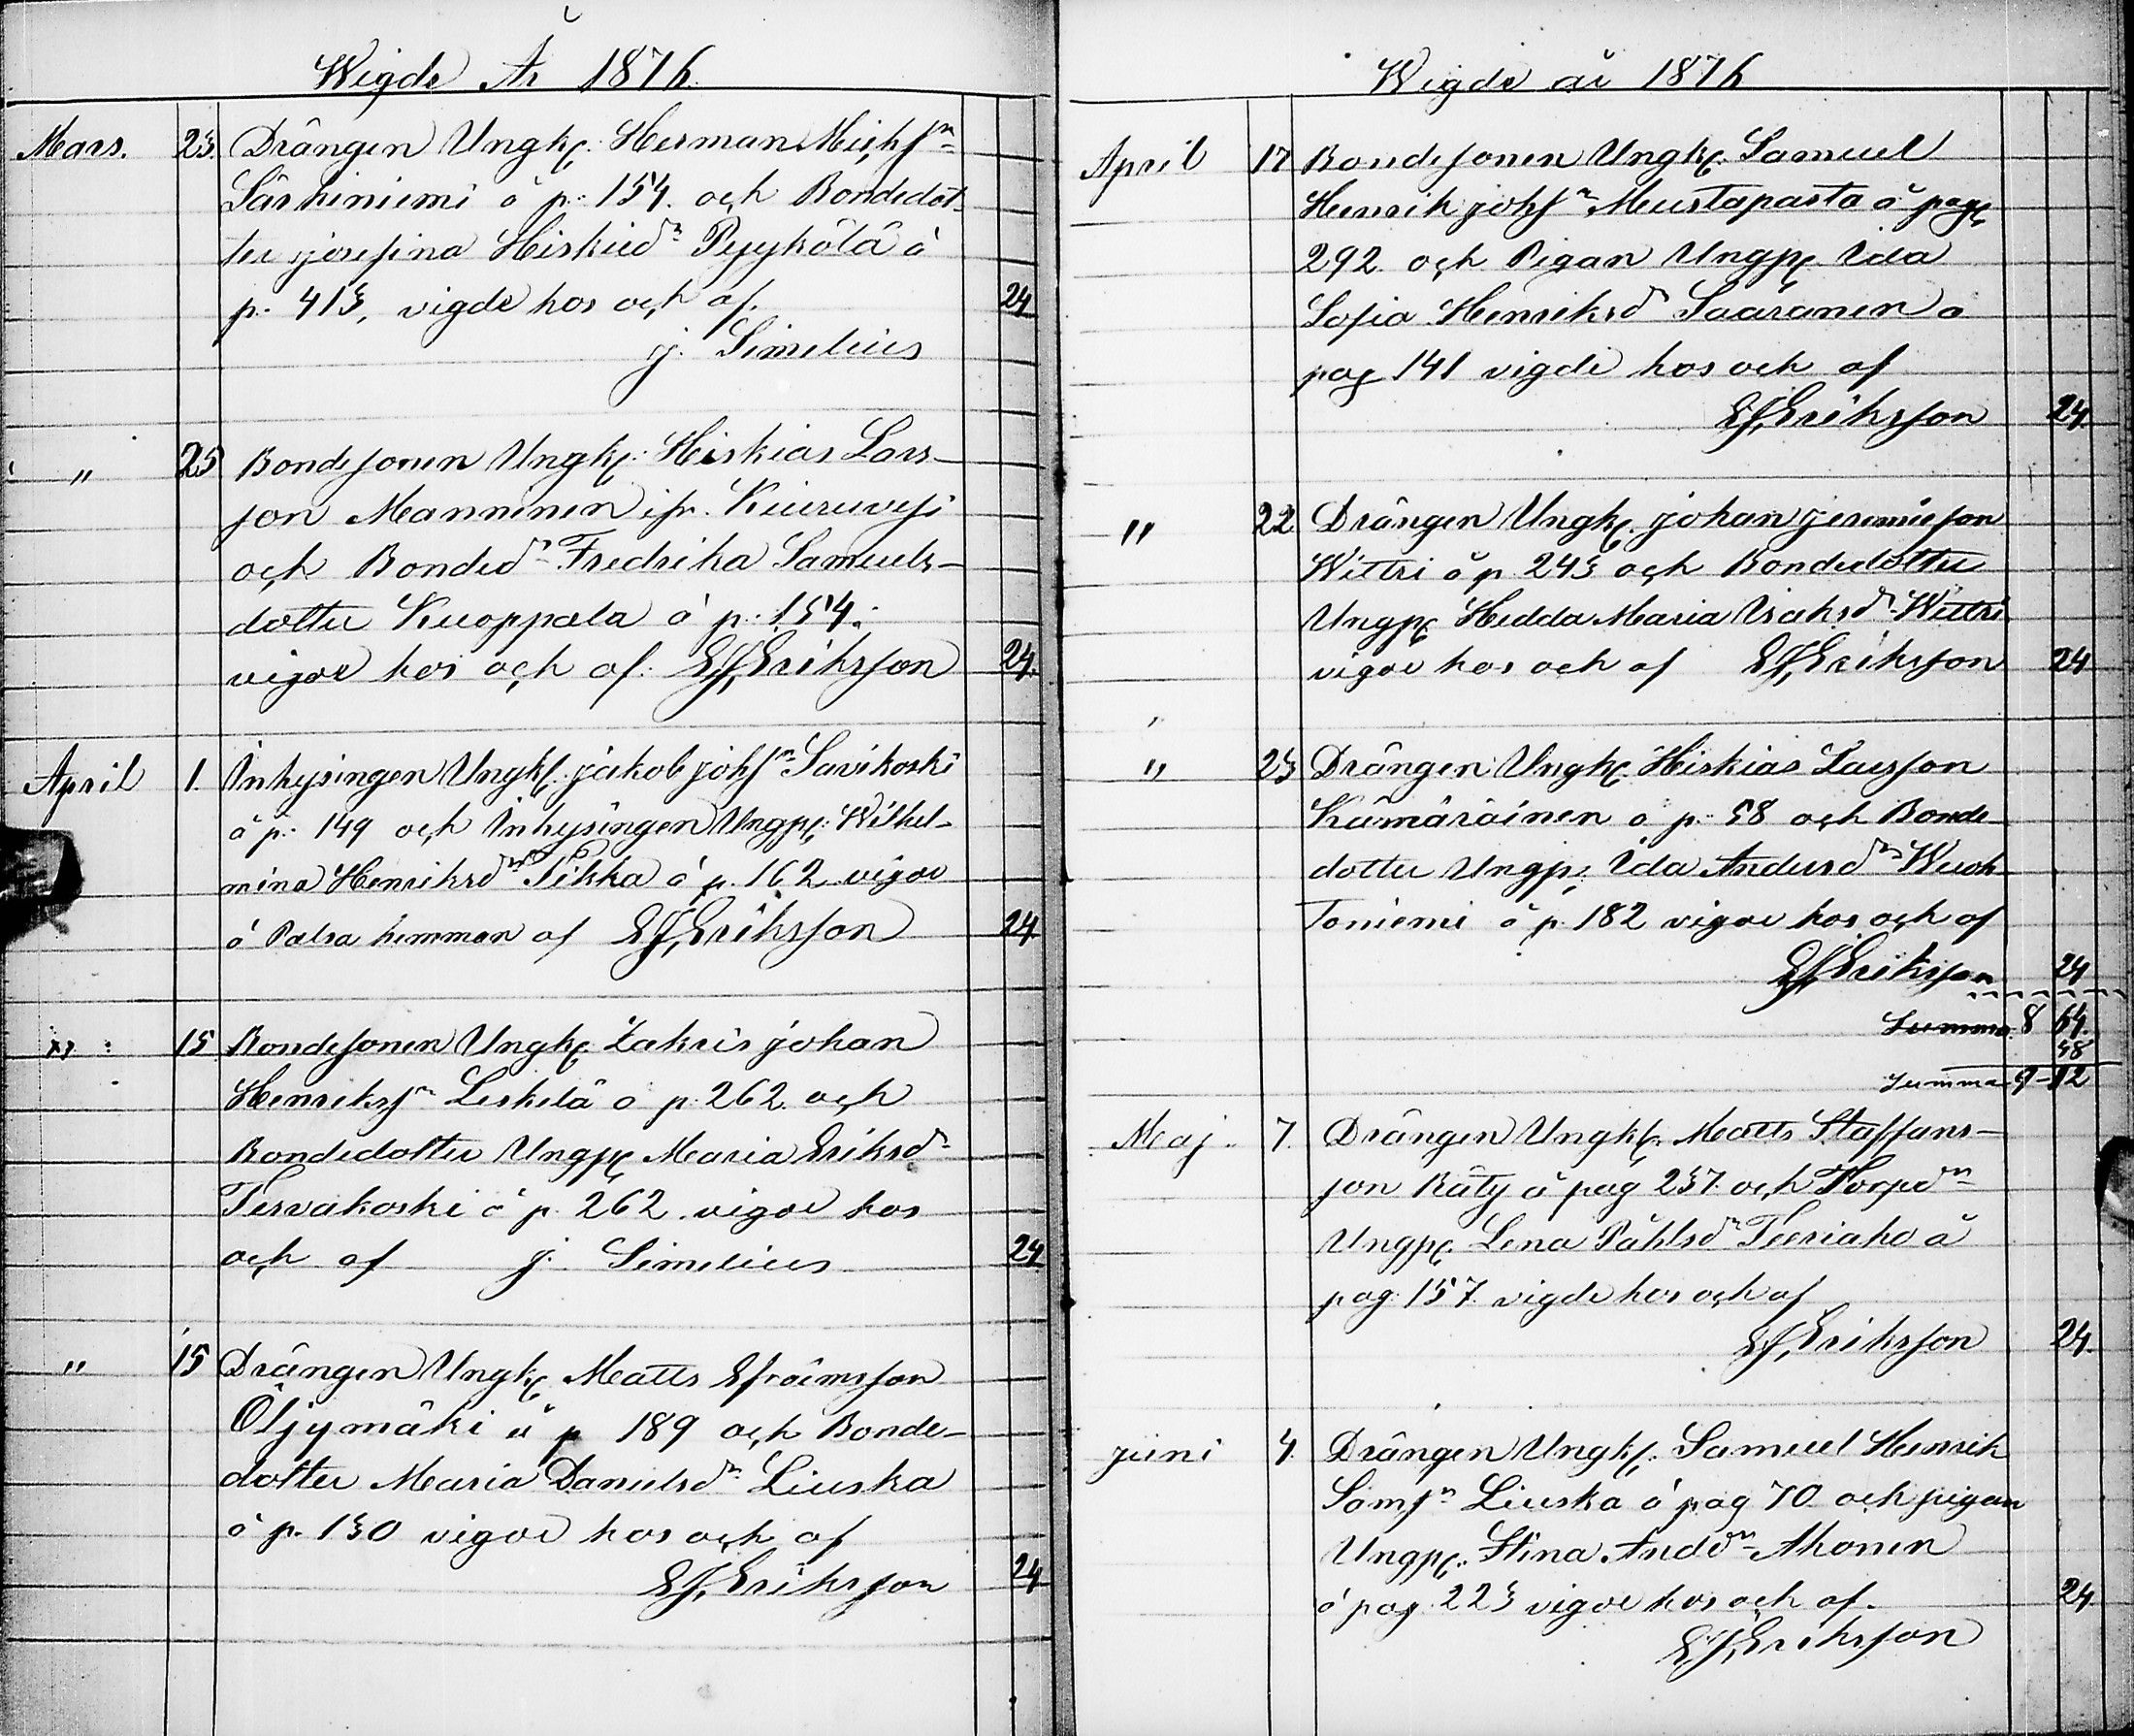 Wigde År 1876.
Mars. 23. Drängen Ungk. Herman Michsn
Särkiniemi å p. 154. och Bondedot-
ter Josefina Hiskiedr Pyykölä å
p. 413, vigde hos och af. 24
J. Simelius
" 25 Bondesonen Ungk. Hiskias Lars-
son Manninen ifr. Kiuruvesi
och Bonded:r Fredrika Samuels-
dotter Kuoppala å p. 154.
vigde hos och af. Ef. Eriksson 24.
April 1. Inhysingen Ungk. Jakob Johsn Savikoski
å p. 149 och Inhysingen Ungp. Wilhel-
mina Henriksdr Pikka å p. 162. vigde
å Palra hemman af Ef. Eriksson 24
" 15 Bondesonen Ungk. Zakris Johan
Henrikssn Leskelä å p. 262. och
Bondedotter Ungp. Maria Eriksdr
Tervakoski å p. 262. vigde hos
och af J. Simelius 24.
" 15 Drängen Ungk. Matts Efraimsson
Öljymäki å p 189 och Bonde-
dotter Maria Danielsdr Liuska
å p. 130 vigde hos och af
Ef. Eriksson 24
Wigde år 1876
April 17 Bondesonen Ungk. Samuel
Henrik Johsn Mustaparta å pag.
292. och Pigan Ungp. Ida
Sofia Henriksdr Saaranen å
pag 141 vigde hos och af
Ef. Eriksson 24.
" 22. Drängen Ungk. Johan Jeremiesson
Wittri å p. 243 och Bondedotter
Ungp. Hedda Maria Isaksdr Wittri
vigde hos och af Ef. Eriksson 24
" 23 Drängen Ungk. Hiskias Larsson
Kämäräinen å p. 58 och Bonde
dotter Ungp. Ida Andersdr Wuok
toniemi å p. 182 vigde hos och af
Ef. Eriksson 24
Summa 8 64.
48
Summa 9-12
Maj. 7. Drängen Ungk. Matts Staffans-
son Räty å pag 237. och Torpdr
Ungp. Lena Påhlsdr Teeriaho å
pag. 157. vigde hos och af
Ef. Eriksson 24.
Juni 4. Drängen Ungk. Samuel Henrik
Samsn Liuska å pag 70 och pigan
Ungp. Stina Anddr Ahonen
å pag. 223 vigde hos och af. 24.
Ef. Eriksson